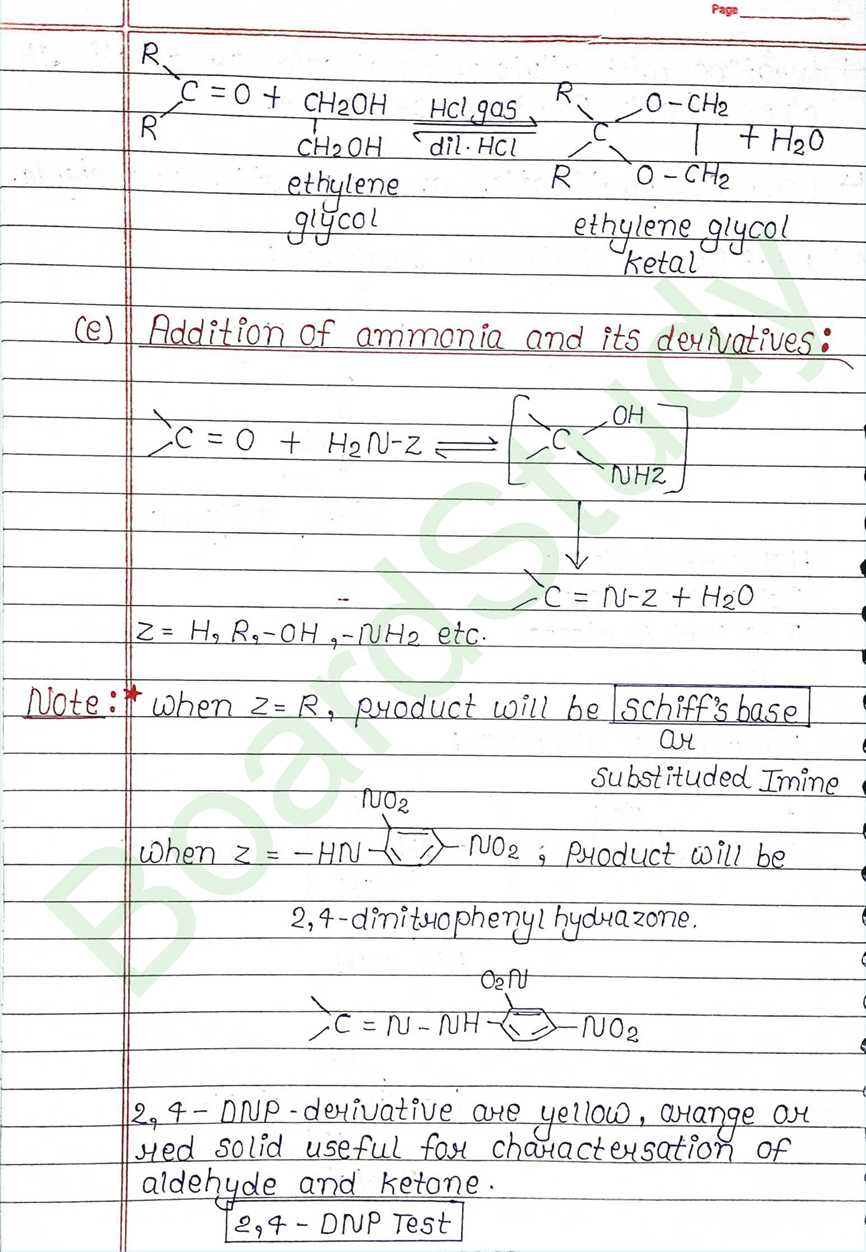 Page
R
R
C = O + CH2OH
CH2OH
ethylene
glycol
HCl gas
dil. HCl
R
R
C
O - CH2
O - CH2
+ H2O
ethylene glycol
ketal
(e) Addition of ammonia and its derivatives:
C = O + H2N-Z
C
OH
NHZ
C = N-Z + H2O
Z = H, R, -OH, -NH2 etc.
Note: * when Z = R, product will be schiff's base
or
substituded Imine
NO2
when Z = -HN- -NO2 ; product will be
2,4-dinitrophenyl hydrazone.
O2N
C = N - NH- -NO2
2,4 - DNP - derivative are yellow, orange or
red solid useful for charactersation of
aldehyde and ketone.
2,4 - DNP Test
BoardStudy